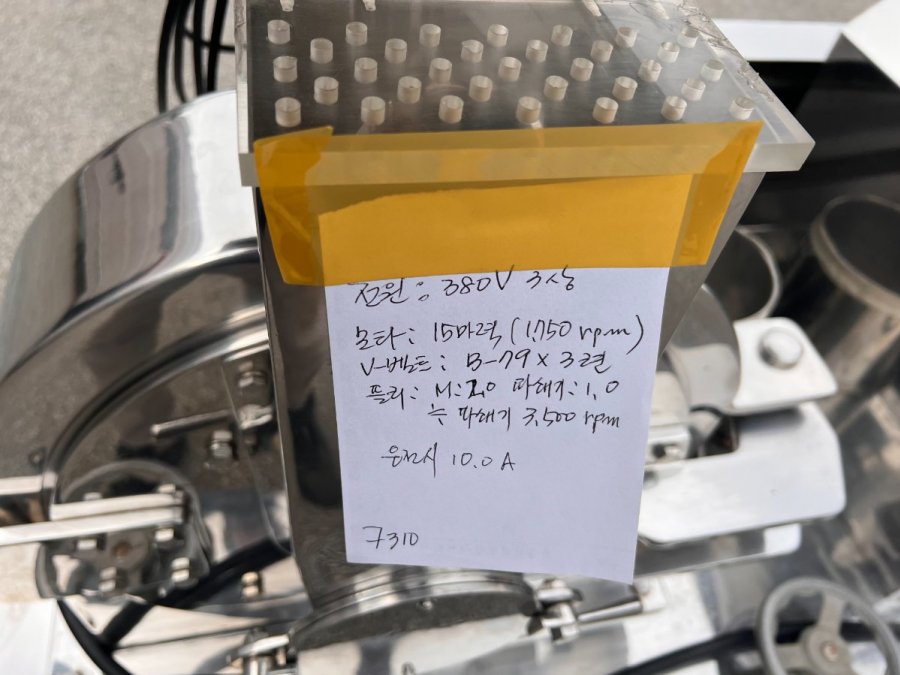 전원: 380V 3상
모타: 15마력 (1,750 rpm)
V-벨트: B-79 x 3련
플리: M: 2.0 파쇄기: 1.0
≒ 파쇄기 3,500 rpm
운전시 10.0 A
7310